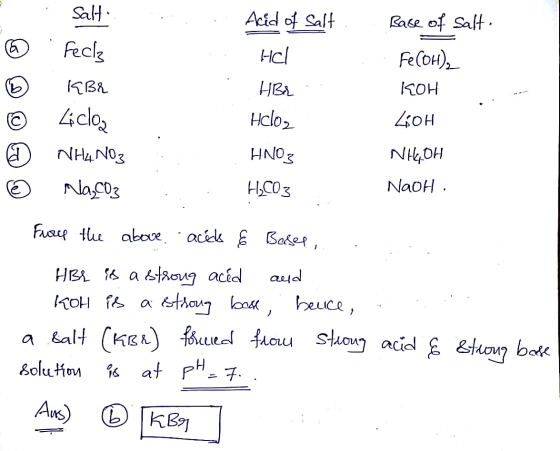 Salt. Acid of Salt Base of Salt.
ⓐ FeCl3 HCl Fe(OH)2
ⓑ KBr HBr KOH
ⓒ LiClO2 HClO2 LiOH
ⓓ NH4NO3 HNO3 NH4OH
ⓔ Na2CO3 H2CO3 NaOH.
From the above acids & Bases,
HBr is a strong acid and
KOH is a strong base, hence,
a salt (KBr) formed from strong acid & strong base
solution is at PH = 7.
Ans) ⓑ KBr